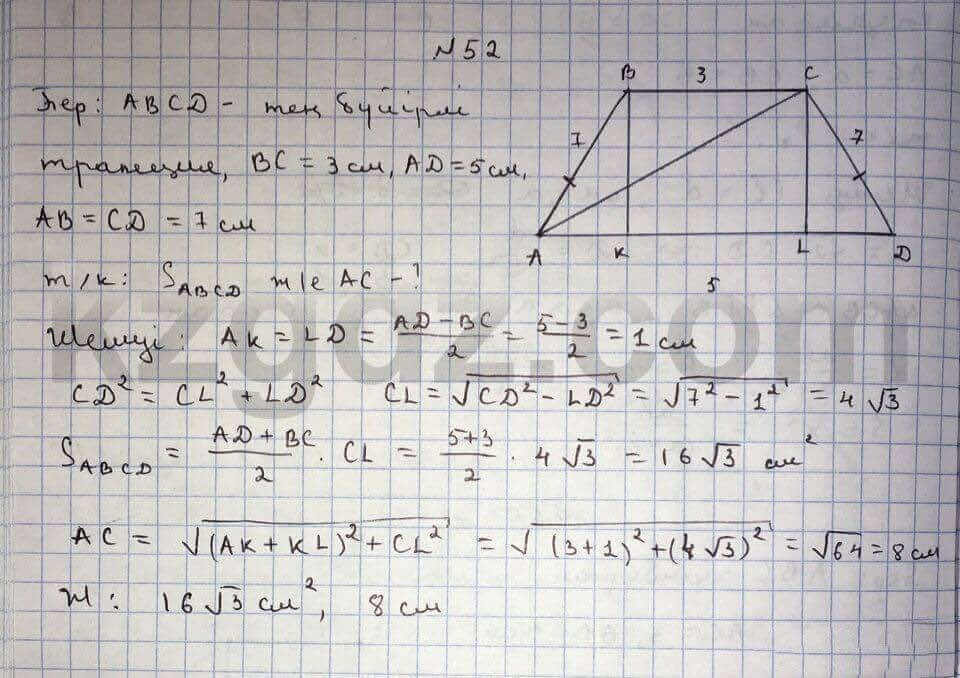 №52
Бер: ABCD - тең бүйірлі
трапеция, BC = 3 см, AD = 5 см,
AB = CD = 7 см
т/к: S_ABCD ж/е AC - ?
Шешуі: AK = LD = (AD - BC)/2 = (5 - 3)/2 = 1 см
CD² = CL² + LD² CL = √(CD² - LD²) = √(7² - 1²) = 4√3
S_ABCD = (AD + BC)/2 · CL = (5+3)/2 · 4√3 = 16√3 см²
AC = √((AK + KL)² + CL²) = √((3+1)² + (4√3)²) = √64 = 8 см
Ж: 16√3 см², 8 см
B 3 C
7 7
A K L D
5
kzgdz.com